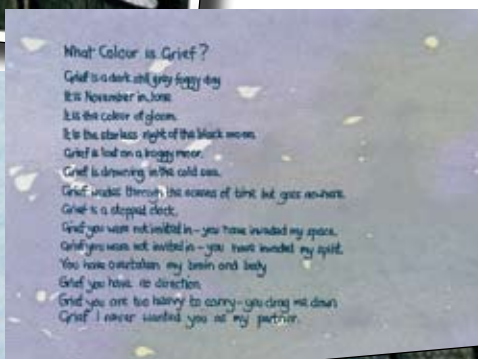 What Colour is Grief?
Grief is a dark still grey foggy day
It is November in June
It is the colour of gloom.
It is the starless night of the black moon.
Grief is lost on a boggy moor.
Grief is drowning in the cold sea.
Grief wades through the oceans of time but goes nowhere.
Grief is a stopped clock.
Grief you were not invited in - you have invaded my space.
Grief you were not invited in - you have invaded my spirit.
You have overtaken my brain and body
Grief you have no direction
Grief you are too heavy to carry - you drag me down
Grief I never wanted you as my partner.